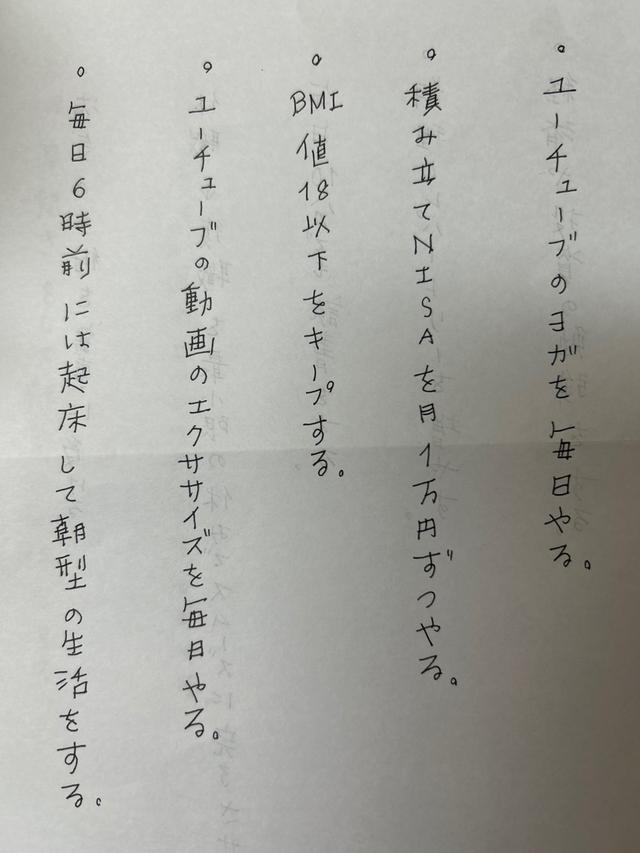 。ユーチューブのヨガを毎日やる。
。積み立てNISAを月1万円ずつやる。
。BMI値18以下をキープする。
。ユーチューブの動画のエクササイズを毎日やる。
。毎日6時前には起床して朝型の生活をする。